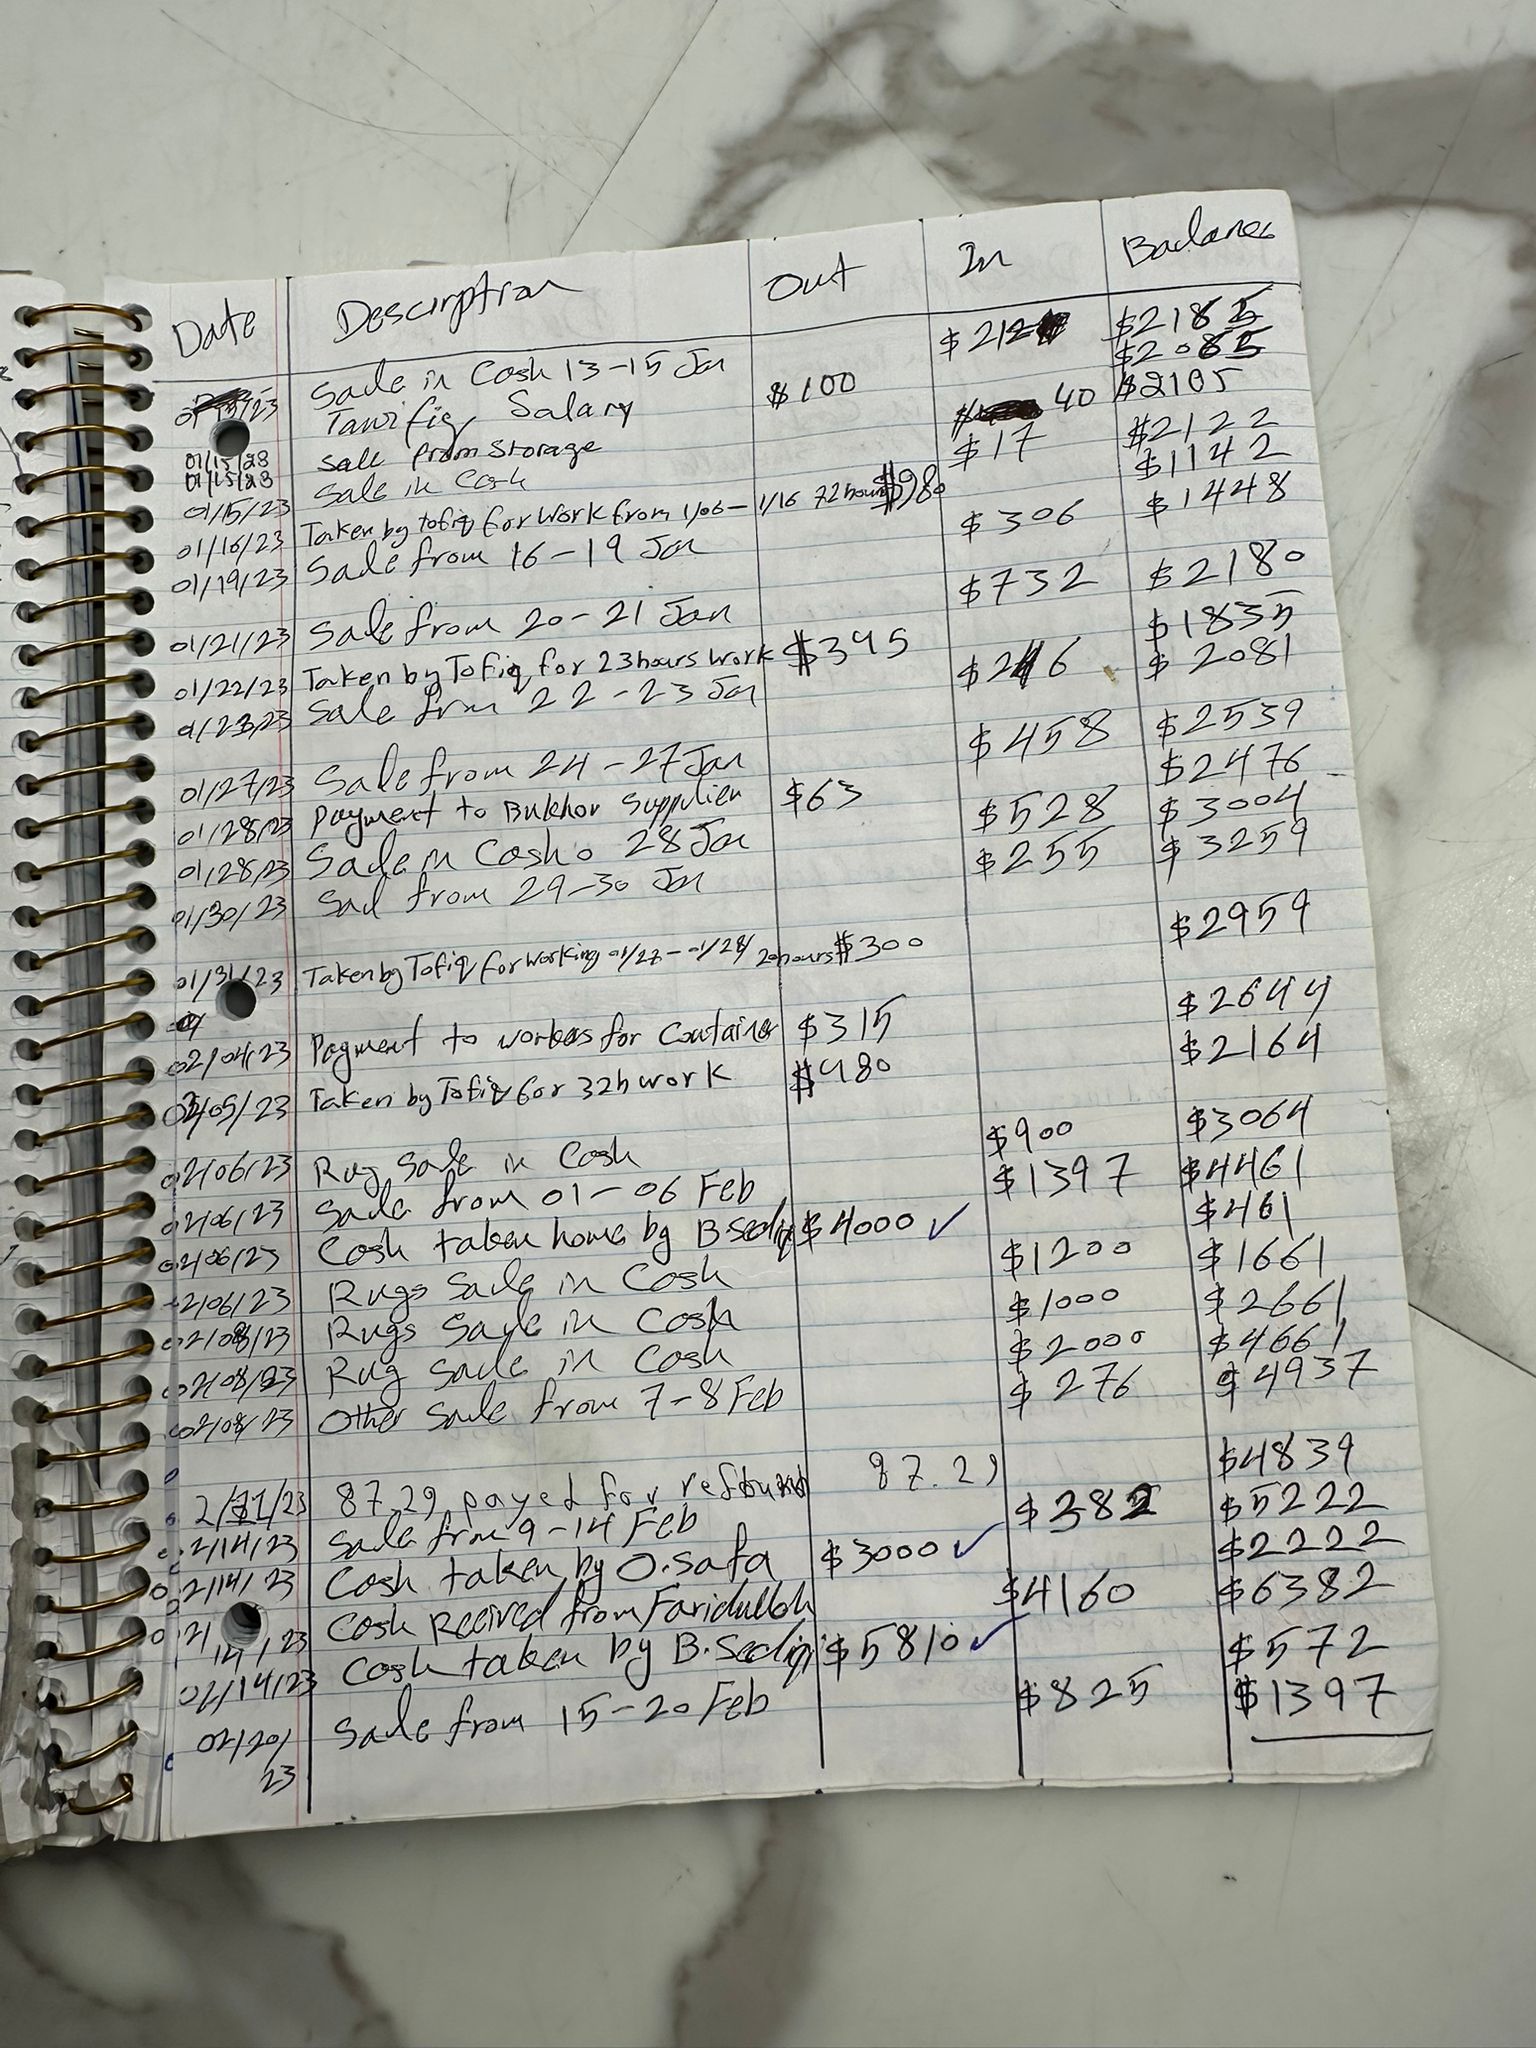 Date Description Out In Balance
01/15/23 Sale in Cash 13-15 Jan $212 $2185
01/15/23 Tawifiq Salary $100 $2085
01/15/23 Sale from Storage 40 $2105
01/15/23 Sale in Cash $17 $2122
01/16/23 Taken by tofiq for work from 1/06-1/16 72hours $980 $1142
01/19/23 Sale from 16-19 Jan $306 $1448
01/21/23 Sale from 20-21 Jan $732 $2180
01/22/23 Taken by Tofiq for 23hours work $345 $1835
01/23/23 Sale from 22-23 Jan $246 $2081
01/27/23 Sale from 24-27 Jan $458 $2539
01/28/23 Payment to Bukhor Supplier $63 $2476
01/28/23 Sale in Cash 28 Jan $528 $3004
01/30/23 Sal from 29-30 Jan $255 $3259
01/31/23 Taken by Tofiq for working 01/27-01/28/ 20hours $300 $2959
02/04/23 Payment to workers for Container $315 $2644
02/05/23 Taken by Tofiq for 32h work $480 $2164
02/06/23 Rug Sale in Cash $900 $3064
02/06/23 Sale from 01-06 Feb $1397 $4461
02/06/23 Cash taken home by B.sediq $4000 ✓ $461
02/06/23 Rugs Sale in Cash $1200 $1661
02/08/23 Rugs Sale in Cash $1000 $2661
02/08/23 Rug Sale in Cash $2000 $4661
02/08/23 Other Sale from 7-8 Feb $276 $4937
2/11/23 87.29 payed for refound 87.29 $4839
02/14/23 Sale from 9-14 Feb $382 $5222
02/14/23 Cash taken by O.Safa $3000 ✓ $2222
02/14/23 Cash Recived from Faridulloh $4160 $6382
02/14/23 Cash taken by B.Sediqi $5810 ✓ $572
02/20/23 Sale from 15-20 Feb $825 $1397